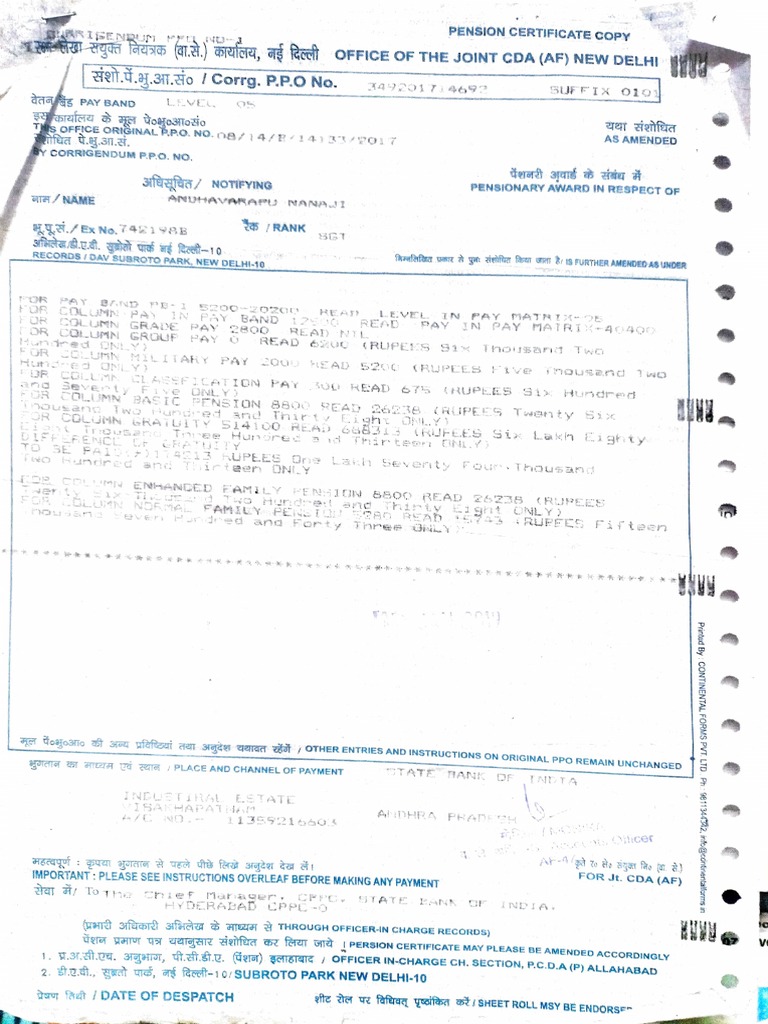 CORRIGENDUM PPO NO-1
PENSION CERTIFICATE COPY
लेखा संयुक्त नियंत्रक (वा.से.) कार्यालय, नई दिल्ली OFFICE OF THE JOINT CDA (AF) NEW DELHI
संशो.पें.भु.आ.सं० / Corrg. P.P.O No. 349201714692 SUFFIX 0101
वेतन बैंड PAY BAND LEVEL 05
इस कार्यालय के मूल पे०भु०आ०सं०
THIS OFFICE ORIGINAL P.P.O. NO. 08/14/B/14133/2017
यथा संशोधित
AS AMENDED
संशोधित पे.भु.आ.सं.
BY CORRIGENDUM P.P.O. NO.
अधिसूचित / NOTIFYING
पेंशनरी अवार्ड के संबंध में
PENSIONARY AWARD IN RESPECT OF
नाम / NAME ANUHAVARAPU NANAJI
भू.पू.सं./ Ex No. 742198B रैंक / RANK SGT
अभिलेख/डी.ए.वी. सुब्रोतो पार्क नई दिल्ली-10
RECORDS / DAV SUBROTO PARK, NEW DELHI-10
निम्नलिखित प्रकार से पुनः संशोधित किया जाता है/ IS FURTHER AMENDED AS UNDER
FOR PAY BAND PB-1 5200-20200 READ LEVEL IN PAY MATRIX-05
FOR COLUMN PAY IN PAY BAND READ PAY IN PAY MATRIX-40400
FOR COLUMN GRADE PAY 2800 READ NIL
FOR COLUMN GROUP PAY 0 READ 6200 (RUPEES Six Thousand Two
Hundred ONLY)
FOR COLUMN MILITARY PAY 2000 READ 5200 (RUPEES Five Thousand Two
Hundred ONLY)
FOR COLUMN CLASSFICATION PAY 300 READ 675 (RUPEES Six Hundred
and Seventy Five ONLY)
FOR COLUMN BASIC PENSION 8800 READ 26238 (RUPEES Twenty Six
Thousand Two Hundred and Thirty Eight ONLY)
FOR COLUMN GRATUITY 514100 READ 688313 (RUPEES Six Lakh Eighty
Eight Thousand Three Hundred and Thirteen ONLY)
DIFFERENCE OF GRATUITY
TO BE PAID 174213 RUPEES One Lakh Seventy Four Thousand
Two Hundred and Thirteen ONLY
FOR COLUMN ENHANCED FAMILY PENSION 8800 READ 26238 (RUPEES
Twenty Six Thousand Two Hundred and Thirty Eight ONLY)
FOR COLUMN NORMAL FAMILY PENSION 5280 READ 15743 (RUPEES Fifteen
Thousand Seven Hundred and Forty Three ONLY)
मूल पें०भु०आ० की अन्य प्रविष्टियां तथा अनुदेश यथावत रहेंगें / OTHER ENTRIES AND INSTRUCTIONS ON ORIGINAL PPO REMAIN UNCHANGED
भुगतान का माध्यम एवं स्थान / PLACE AND CHANNEL OF PAYMENT STATE BANK OF INDIA
INDUSTIRAL ESTATE
VISAKHAPATNAM ANDHRA PRADESH
A/C NO.- 11359216603
Accounts Officer
AF-4
(कृते र० ले० संयुक्त नि० (वा. से.)
FOR Jt. CDA (AF)
महत्वपूर्ण : कृपया भुगतान से पहले पीछे लिखे अनुदेश देख लें।
IMPORTANT : PLEASE SEE INSTRUCTIONS OVERLEAF BEFORE MAKING ANY PAYMENT
सेवा में/ To The Chief Manager, CPPC, STATE BANK OF INDIA.
HYDERABAD CPPC-0
(प्रभारी अधिकारी अभिलेख के माध्यम से THROUGH OFFICER-IN CHARGE RECORDS)
पेंशन प्रमाण पत्र यथानुसार संशोधित कर लिया जाये | PERSION CERTIFICATE MAY PLEASE BE AMENDED ACCORDINGLY
1. प्र.अ.सी.एच. अनुभाग, पी.सी.डी.ए. (पेंशन) इलाहाबाद / OFFICER IN-CHARGE CH. SECTION, P.C.D.A (P) ALLAHABAD
2. डी.ए.वी., सुब्रतो पार्क, नई दिल्ली-10/ SUBROTO PARK NEW DELHI-10
प्रेषण तिथी / DATE OF DESPATCH शीट रोल पर विधिवत् पृष्ठांकित करें / SHEET ROLL MSY BE ENDORSE
Printed By : CONTINENTAL FORMS PVT. LTD